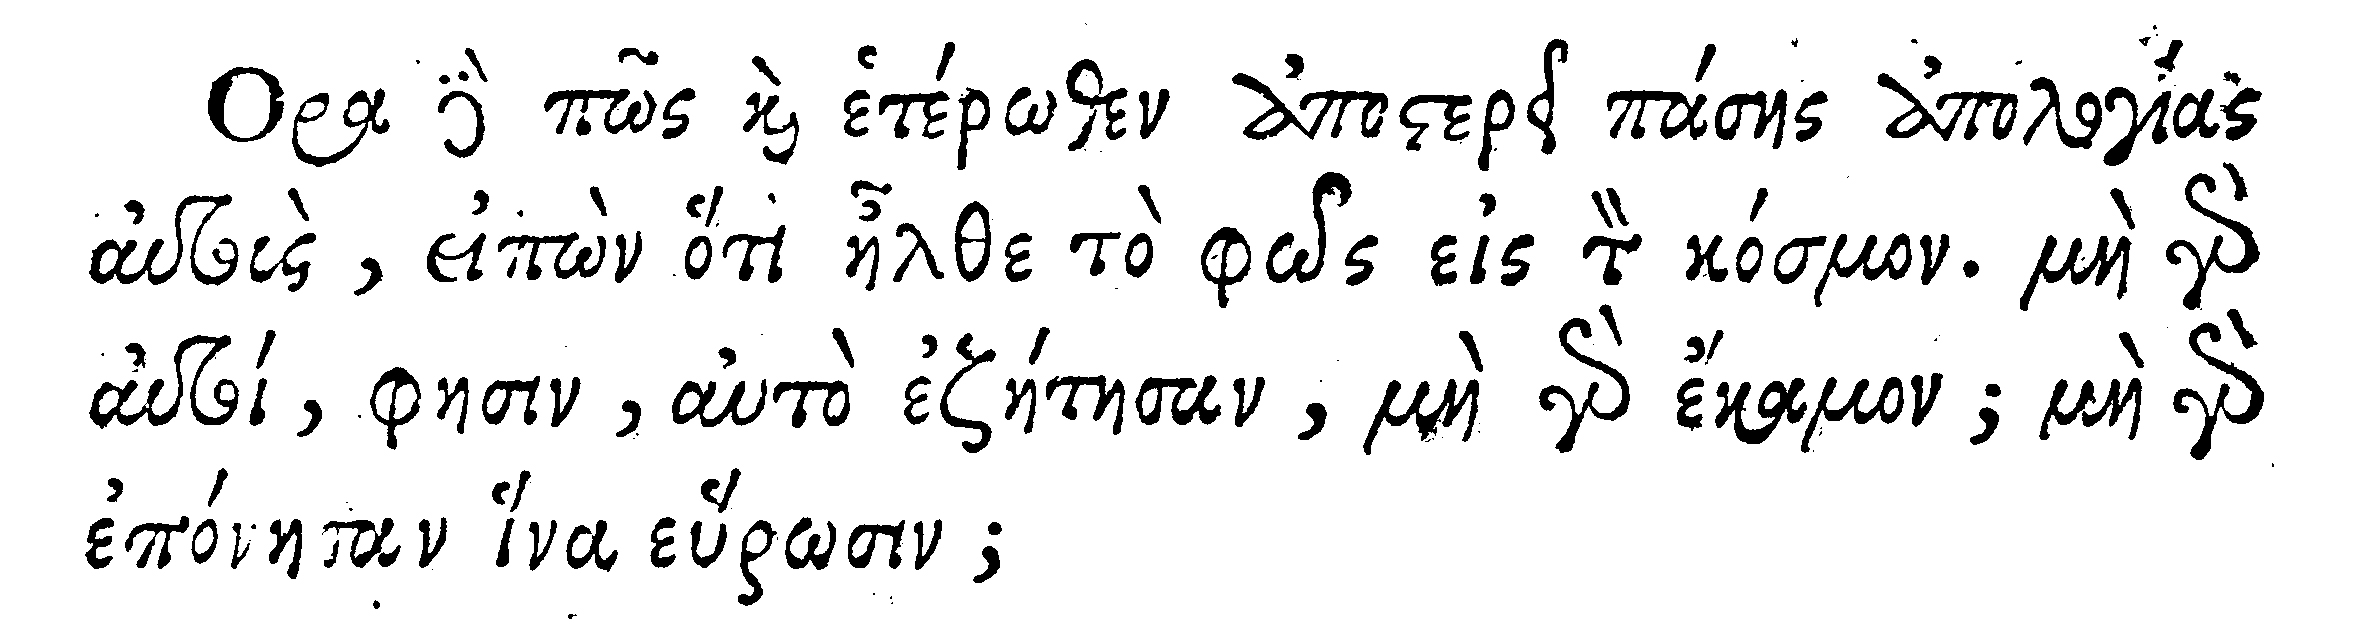 Ορα δὲ πῶς καὶ ἑτέρωθεν ἀποστερεῖ πάσης ἀπολογίας
αὐτοὺς, εἰπὼν ὅτι ἦλθε τὸ φῶς εἰς τὸν κόσμον. μὴ γὰρ
αὐτοί, φησιν, αὐτὸ ἐζήτησαν, μὴ γὰρ ἔκαμον; μὴ γὰρ
ἐπόνησαν ἵνα εὕρωσιν;